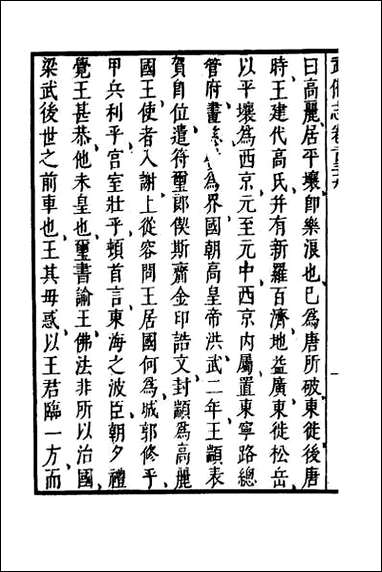 武備志卷
曰高麗居平壤卽樂浪也已爲唐所破東徙後唐
時王建代高氏并有新羅百濟地益廣東徙松岳
以平壤爲西京元至元中西京內屬置東寧路總
管府畫爲界國朝高皇帝洪武二年王顓表
賀自位遣符璽郎偰斯齎金印誥文封顓爲高麗
國王使者入謝上從容問王居國何爲城郭修乎
甲兵利乎宮室壯乎頓首言東海之波臣朝夕禮
覺王甚恭他未皇也璽書諭王佛法非所以治國
梁武後世之前車也王其毋惑以王君臨一方而